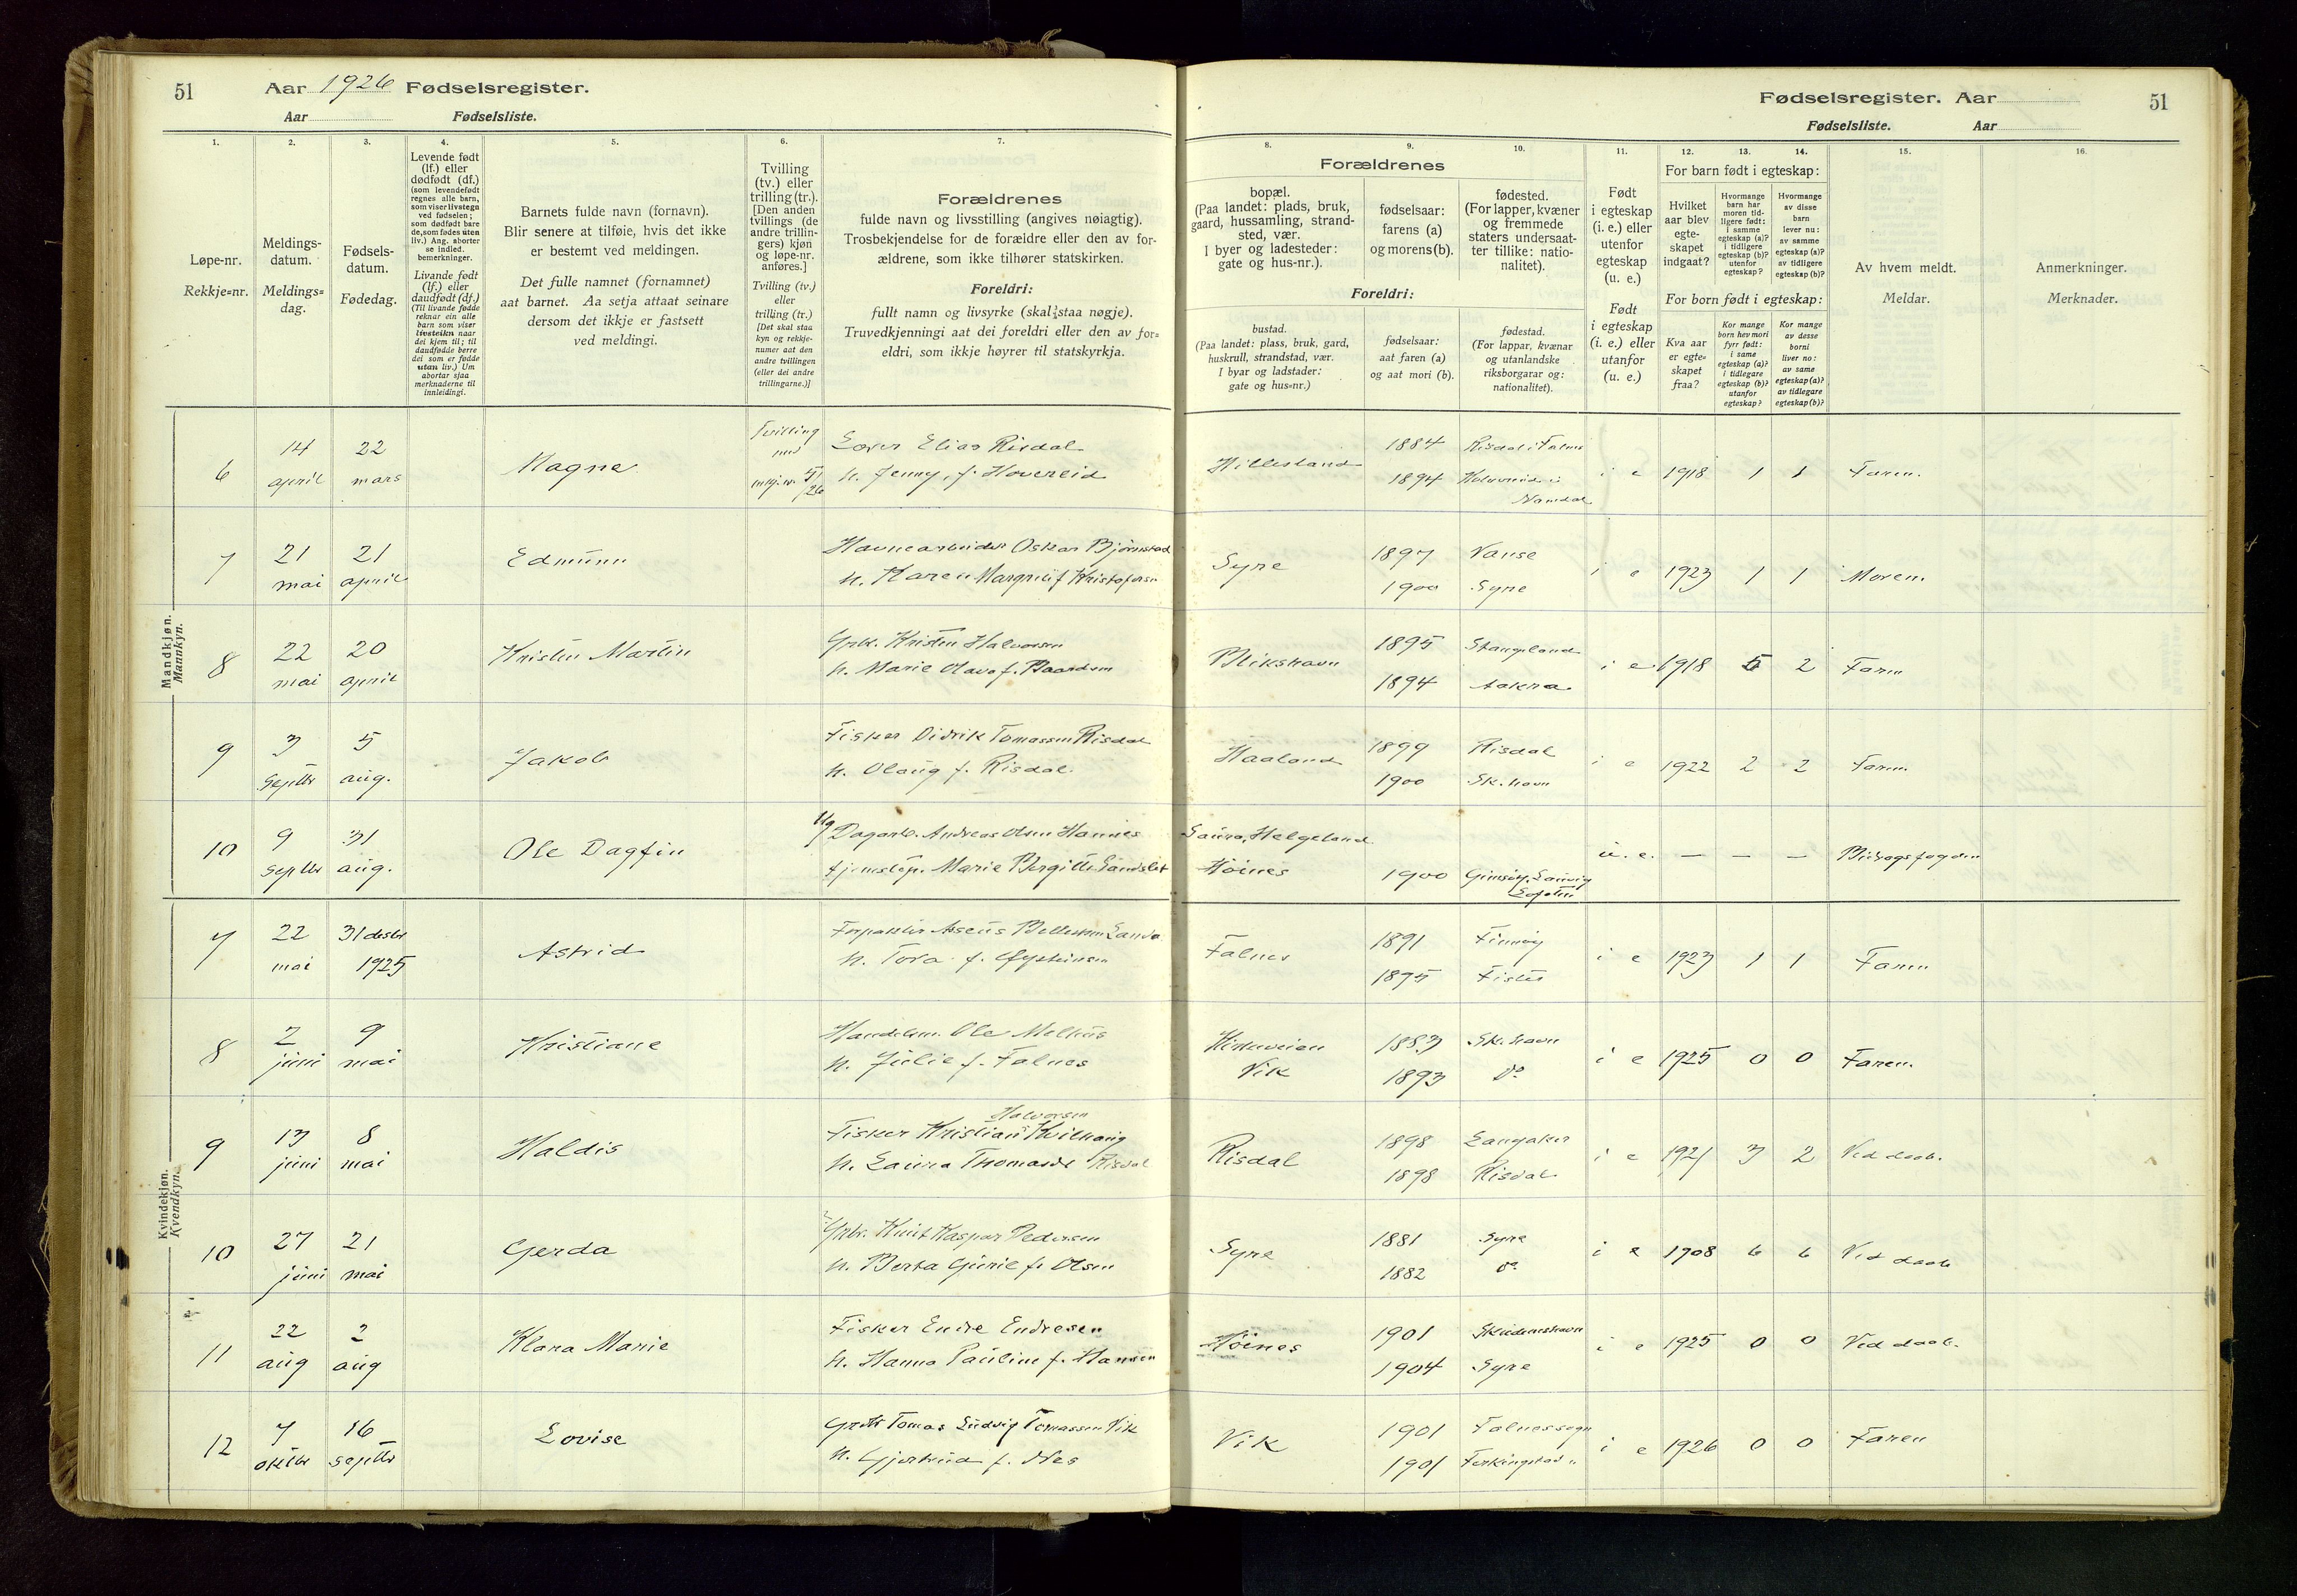 51
Aar 1926 Fødselsregister.
Aar Fødselsliste.
Fødselsregister. Aar
51
Fødselsliste. Aar
1. 2. 3. 4. 5. 6. 7. 8. 9. 10. 11. 12. 13. 14. 15. 16.
Løpe-nr.
Rekkje=nr.
Meldings-
datum.
Meldings=
dag.
Fødsels-
datum.
Fødedag.
Levende født
(lf.) eller
dødfødt (df.)
(som levendefødt
regnes alle barn,
som viser livstegn
ved fødselen;
som dødfødt bare
de, som fødes uten
liv.) Ang. aborter
se indled.
bemerkninger.
Livande født
(lf.) eller
daudfødt (df.)
(Til livande fødde
reknar ein alle
barn som viser
livsteikn naar
dei kjem til; til
daudfødde berre
dei som er fødde
utan liv.) Um
abortar sjaa
merknaderne til
innleidingi.
Barnets fulde navn (fornavn).
Blir senere at tilføie, hvis det ikke
er bestemt ved meldingen.
Det fulle namnet (fornamnet)
aat barnet. Aa setja attaat seinare
dersom det ikkje er fastsett
ved meldingi.
Tvilling
(tv.) eller
trilling (tr.).
[Den anden
tvillings (de
andre trillin-
gers) kjøn
og løpe-nr.
anføres.]
Tvilling (tv.)
eller
trilling (tr.)
[Det skal staa
kyn og rekkje-
numer aat den
andre tvillingen
(eller dei andre
trillingarne.)]
Forældrenes
fulde navn og livsstilling (angives nøiagtig).
Trosbekjendelse for de forældre eller den av for-
ældrene, som ikke tilhører statskirken.
Foreldri:
fullt namn og livsyrke (skal staa nøgje).
Truvedkjenningi aat dei foreldri eller den av for=
eldri, som ikkje høyrer til statskyrkja.
Forældrenes
bopæl.
(Paa landet: plads, bruk,
gaard, hussamling, strand-
sted, vær.
I byer og ladesteder:
gate og hus-nr.).
fødselsaar:
farens (a)
og morens (b).
fødested.
(For lapper, kvæner
og fremmede
staters undersaat-
ter tillike: natio-
nalitet).
Foreldri:
bustad.
(Paa landet: plass, bruk, gard,
huskrull, strandstad, vær.
I byar og ladstader:
gate og hus=nr.)
fødselsaar:
aat faren (a)
og aat mori (b).
fødestad.
(For lappar, kvænar
og utanlandske
riksborgarar og:
nationalitet).
Født
i egteskap
(i. e.) eller
utenfor
egteskap
(u. e.)
Født
i egteskap
(i. e.) eller
utanfor
(u. e.)
For barn født i egteskap:
Hvilket
aar blev
egte-
skapet
indgaat?
Hvormange
barn har
moren tid-
ligere født:
i samme
egteskap (a)?
i tidligere
egteskap (b)?
utenfor
egteskap?
Hvormange
av disse
barn
lever nu:
av samme
egteskap (a)?
av tidligere
egteskap (b)?
For born født i egteskap:
Kva aar
er egte=
skapet
fraa?
Kor mange
born hev mori
fyrr født:
i same
egteskap (a)?
i tidlegare
egteskap (b)?
utanfor
egteskap?
Kor mange
av desse
borni
liver no:
av same
egteskap (a)?
av tidlegare
egteskap (b)?
Av hvem meldt.
Meldar.
Anmerkninger.
Merknader.
Mandkjøn.
Mannkyn.
6 14 april 22 mars Magne Tvilling med 5/26
Elias Risdal
h. Jenny f. Hovereid
Hillesland 1884 Risdal i Falnes
1894 Namdal
i e 1918 1 1 Faren.
7 21 mai 21 april Edmunn
Havnearbeider Oskar Bjørnstad
h. Karen Margrete f Kristofersen
Syre 1897 Vanse
1900 Syre
i e 1923 1 1 Moren.
8 22 mai 20 april Kristen Martin
Grbr. Kristen Halvorsen
h. Marie Olava f. Baardsen
Blikshavn 1895 Stangeland
1894 Aakra
i e 1918 5 2 Faren
9 3 septbr 5 aug. Jakob
Fisker Didrik Tomassen Risdal
h. Olaug f. Risdal.
Haaland 1899 Risdal
1900 Sk.havn
i e 1922 2 2 Faren.
10 9 septbr 31 aug. Ole Dagfin
Ug Dagarb. Andreas Olsen Hannes
tjenestep. Marie Bergitte Sandslet
Saura, Helgeland
Høines 1900 Gimsøy,
Lofoten
u. e. — — — Bidragsfogden
Kvindekjøn.
Kvendkyn.
7 22 mai 31 desbr 1925 Astrid
Forpakter Aseus Sanda
h. Tora f. Øysteinsen
Falnes 1891 Finnøy
1895 Fister
i e 1923 1 1 Faren
8 2 juni 9 mai Kristiane
Handelsm. Ole Melhus
h. Julie f. Falnes
Kirkeveien 1883 Sk.havn
Vik 1893 do
i e 1925 0 0 Faren.
9 13 juni 8 mai Haldis
Halvorsen
Fisker Kristian Kvilhaug
h. Laura Thomasde Risdal
Risdal 1898 Langaker
1898 Risdal
i e 1921 3 2 Ved daab.
10 27 juni 21 mai Gerda
Grbr. Knut Kaspar Pedersen
h. Berta Gurie f. Olsen
Syre 1881 Syre
1882 do
i e 1908 6 6 Ved daab
11 22 aug 2 aug Klara Marie
Fisker Endre Endresen
h. Hanna Pauline f. Hansen
Høines 1901 Skudeneshavn
1904 Syre
i e 1925 0 0 Ved daab.
12 7 oktbr 16 septbr Lovise
Tomas Ludvig Tomassen Vik
h. Gjertrud f. Nes
Vik 1901 Falnes sogn
1901 Ferkingstad "
i e 1926 0 0 Faren